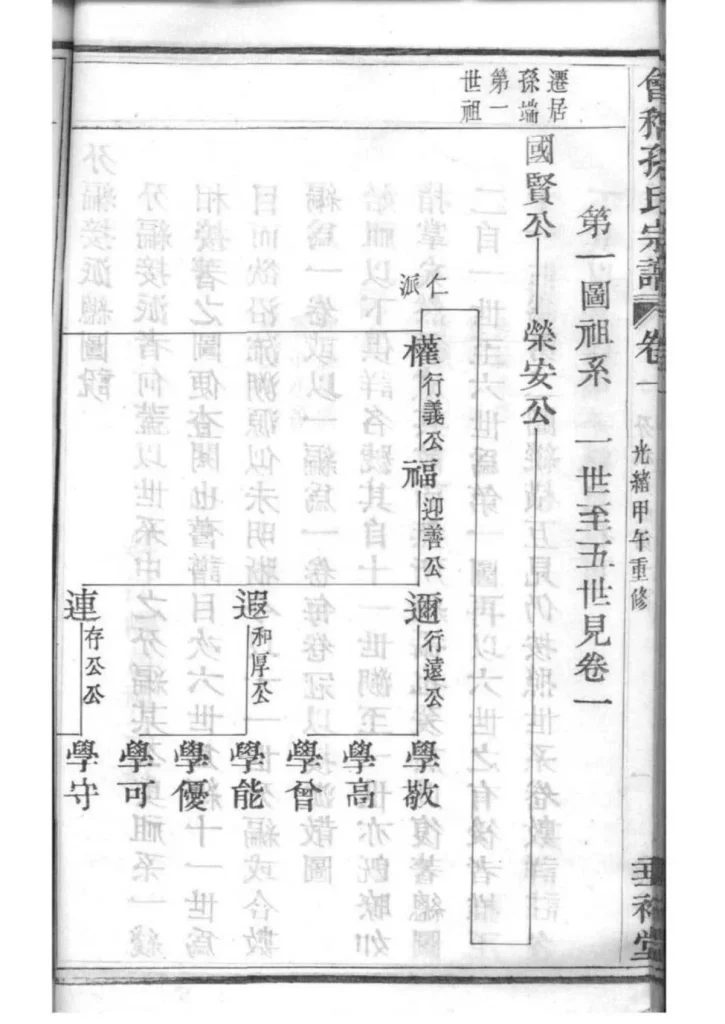 會稽孫氏宗譜
卷一
光緒甲午重修
一
垂裕堂
第一圖祖系 一世至五世見卷一
遷居
孫端
第一
世祖
國賢公 榮安公
仁派
權 行義公
福 迎善公
邇 行遠公
遐 和厚公
連 存公公
學敬
學高
學曾
學能
學優
學可
學守